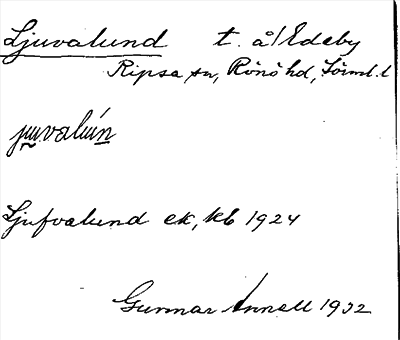 Ljuvalund t. å/Edeby
Ripsa sn, Rönö hd, Södml. l
juvalún
Ljufvalund ek, kb 1924
Gunnar Annell 1932